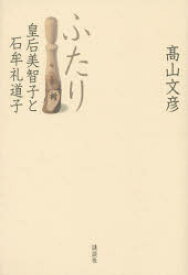 ふたり
皇后美智子と
石牟礼道子
髙山文彦
講談社